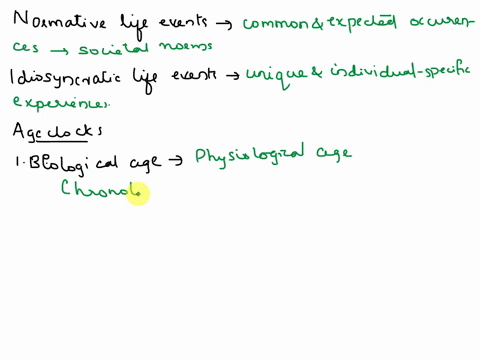 Normative life events → common & expected occuren-
ces → societal norms
Idiosyncratic life events → unique & individual-specific
experiences.
Age clocks
1. Biological age → Physiological age
Chronol